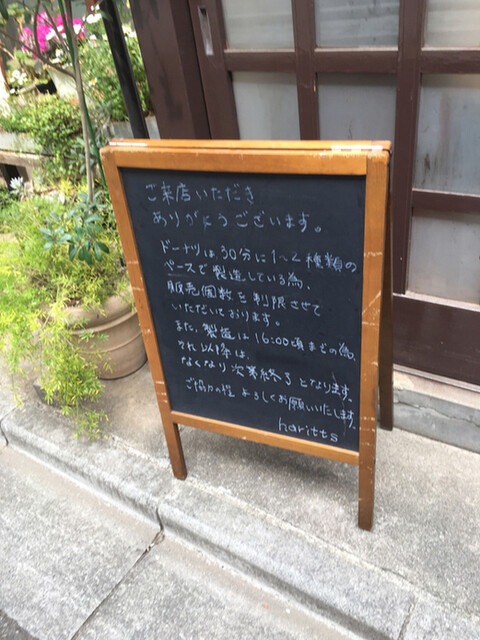 ご来店いただき
ありがとうございます。
ドーナツは30分に1〜2種類の
ペースで製造している為、
販売個数を制限させて
いただいております。
また、製造は16:00頃までの為、
それ以降は、
なくなり次第終了となります。
ご協力の程よろしくお願いいたします。
haritts